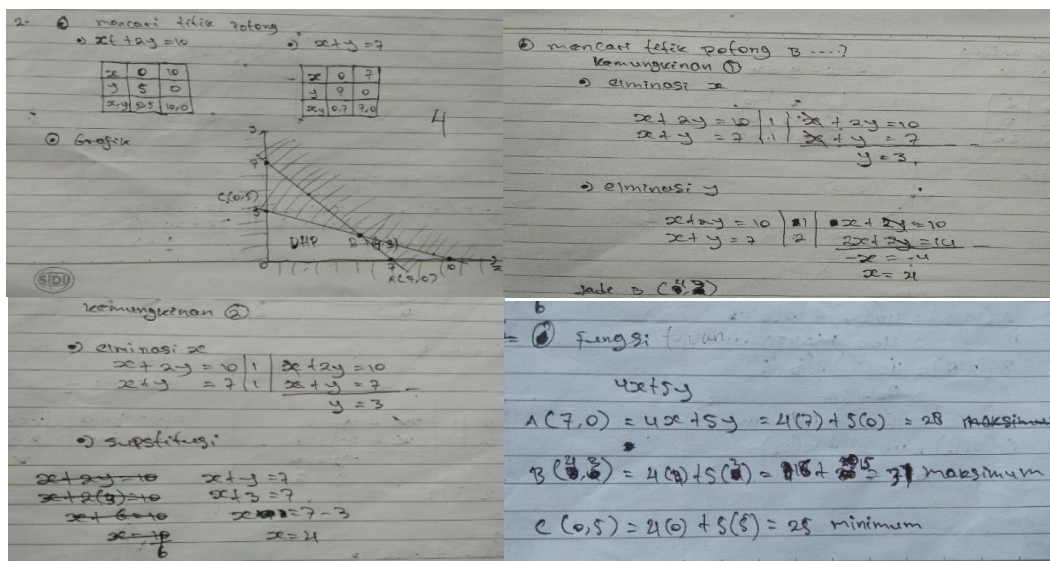 2. mencari titik potong
x + 2y = 10
x + y = 7
x 0 10
y 5 0
x,y 0,5 10,0
x 0 7
y 7 0
x,y 0,7 7,0
4
Grafik
y
7
C(0,5)
5
DHP
B (4,3)
0
7
10
x
A(7,0)
SIDU
mencari titik potong B ....?
kemungkinan ①
elminasi x
x + 2y = 10 | 1 | x + 2y = 10
x + y = 7 | 1 | x + y = 7 -
y = 3
elminasi y
x + 2y = 10 | 1 | x + 2y = 10
x + y = 7 | 2 | 2x + 2y = 14 -
-x = -4
x = 4
Jade B (4,3)
kemungkinan ②
elminasi x
x + 2y = 10 | 1 | x + 2y = 10
x + y = 7 | 1 | x + y = 7 -
y = 3
supstitusi
x + 2y = 10 x + y = 7
x + 2(3) = 10 x + 3 = 7
x + 6 = 10 x = 7 - 3
x = 10 x = 4
6
6
= fungsi
4x + 5y
A (7,0) = 4x + 5y = 4(7) + 5(0) = 28 maksimum
B (4,3) = 4(4) + 5(3) = 16 + 15 = 31 maksimum
C (0,5) = 4(0) + 5(5) = 25 minimum